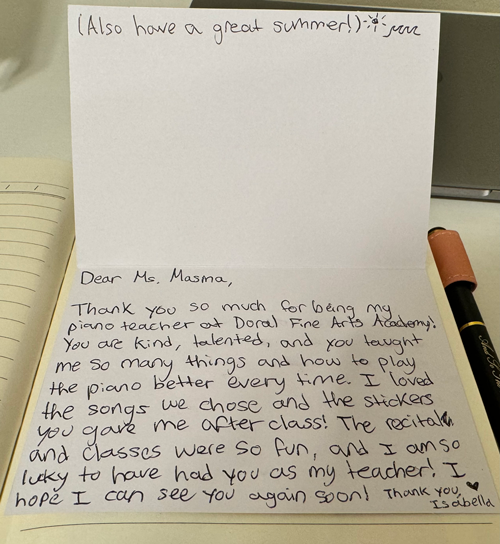 (Also have a great summer!)
Dear Ms. Masma,
Thank you so much for being my
piano teacher at Doral Fine Arts Academy!
You are kind, talented, and you taught
me so many things and how to play
the piano better every time. I loved
the songs we chose and the stickers
you gave me after class! The recitals
and classes were so fun, and I am so
lucky to have had you as my teacher! I
hope I can see you again soon! Thank you,
Isabella